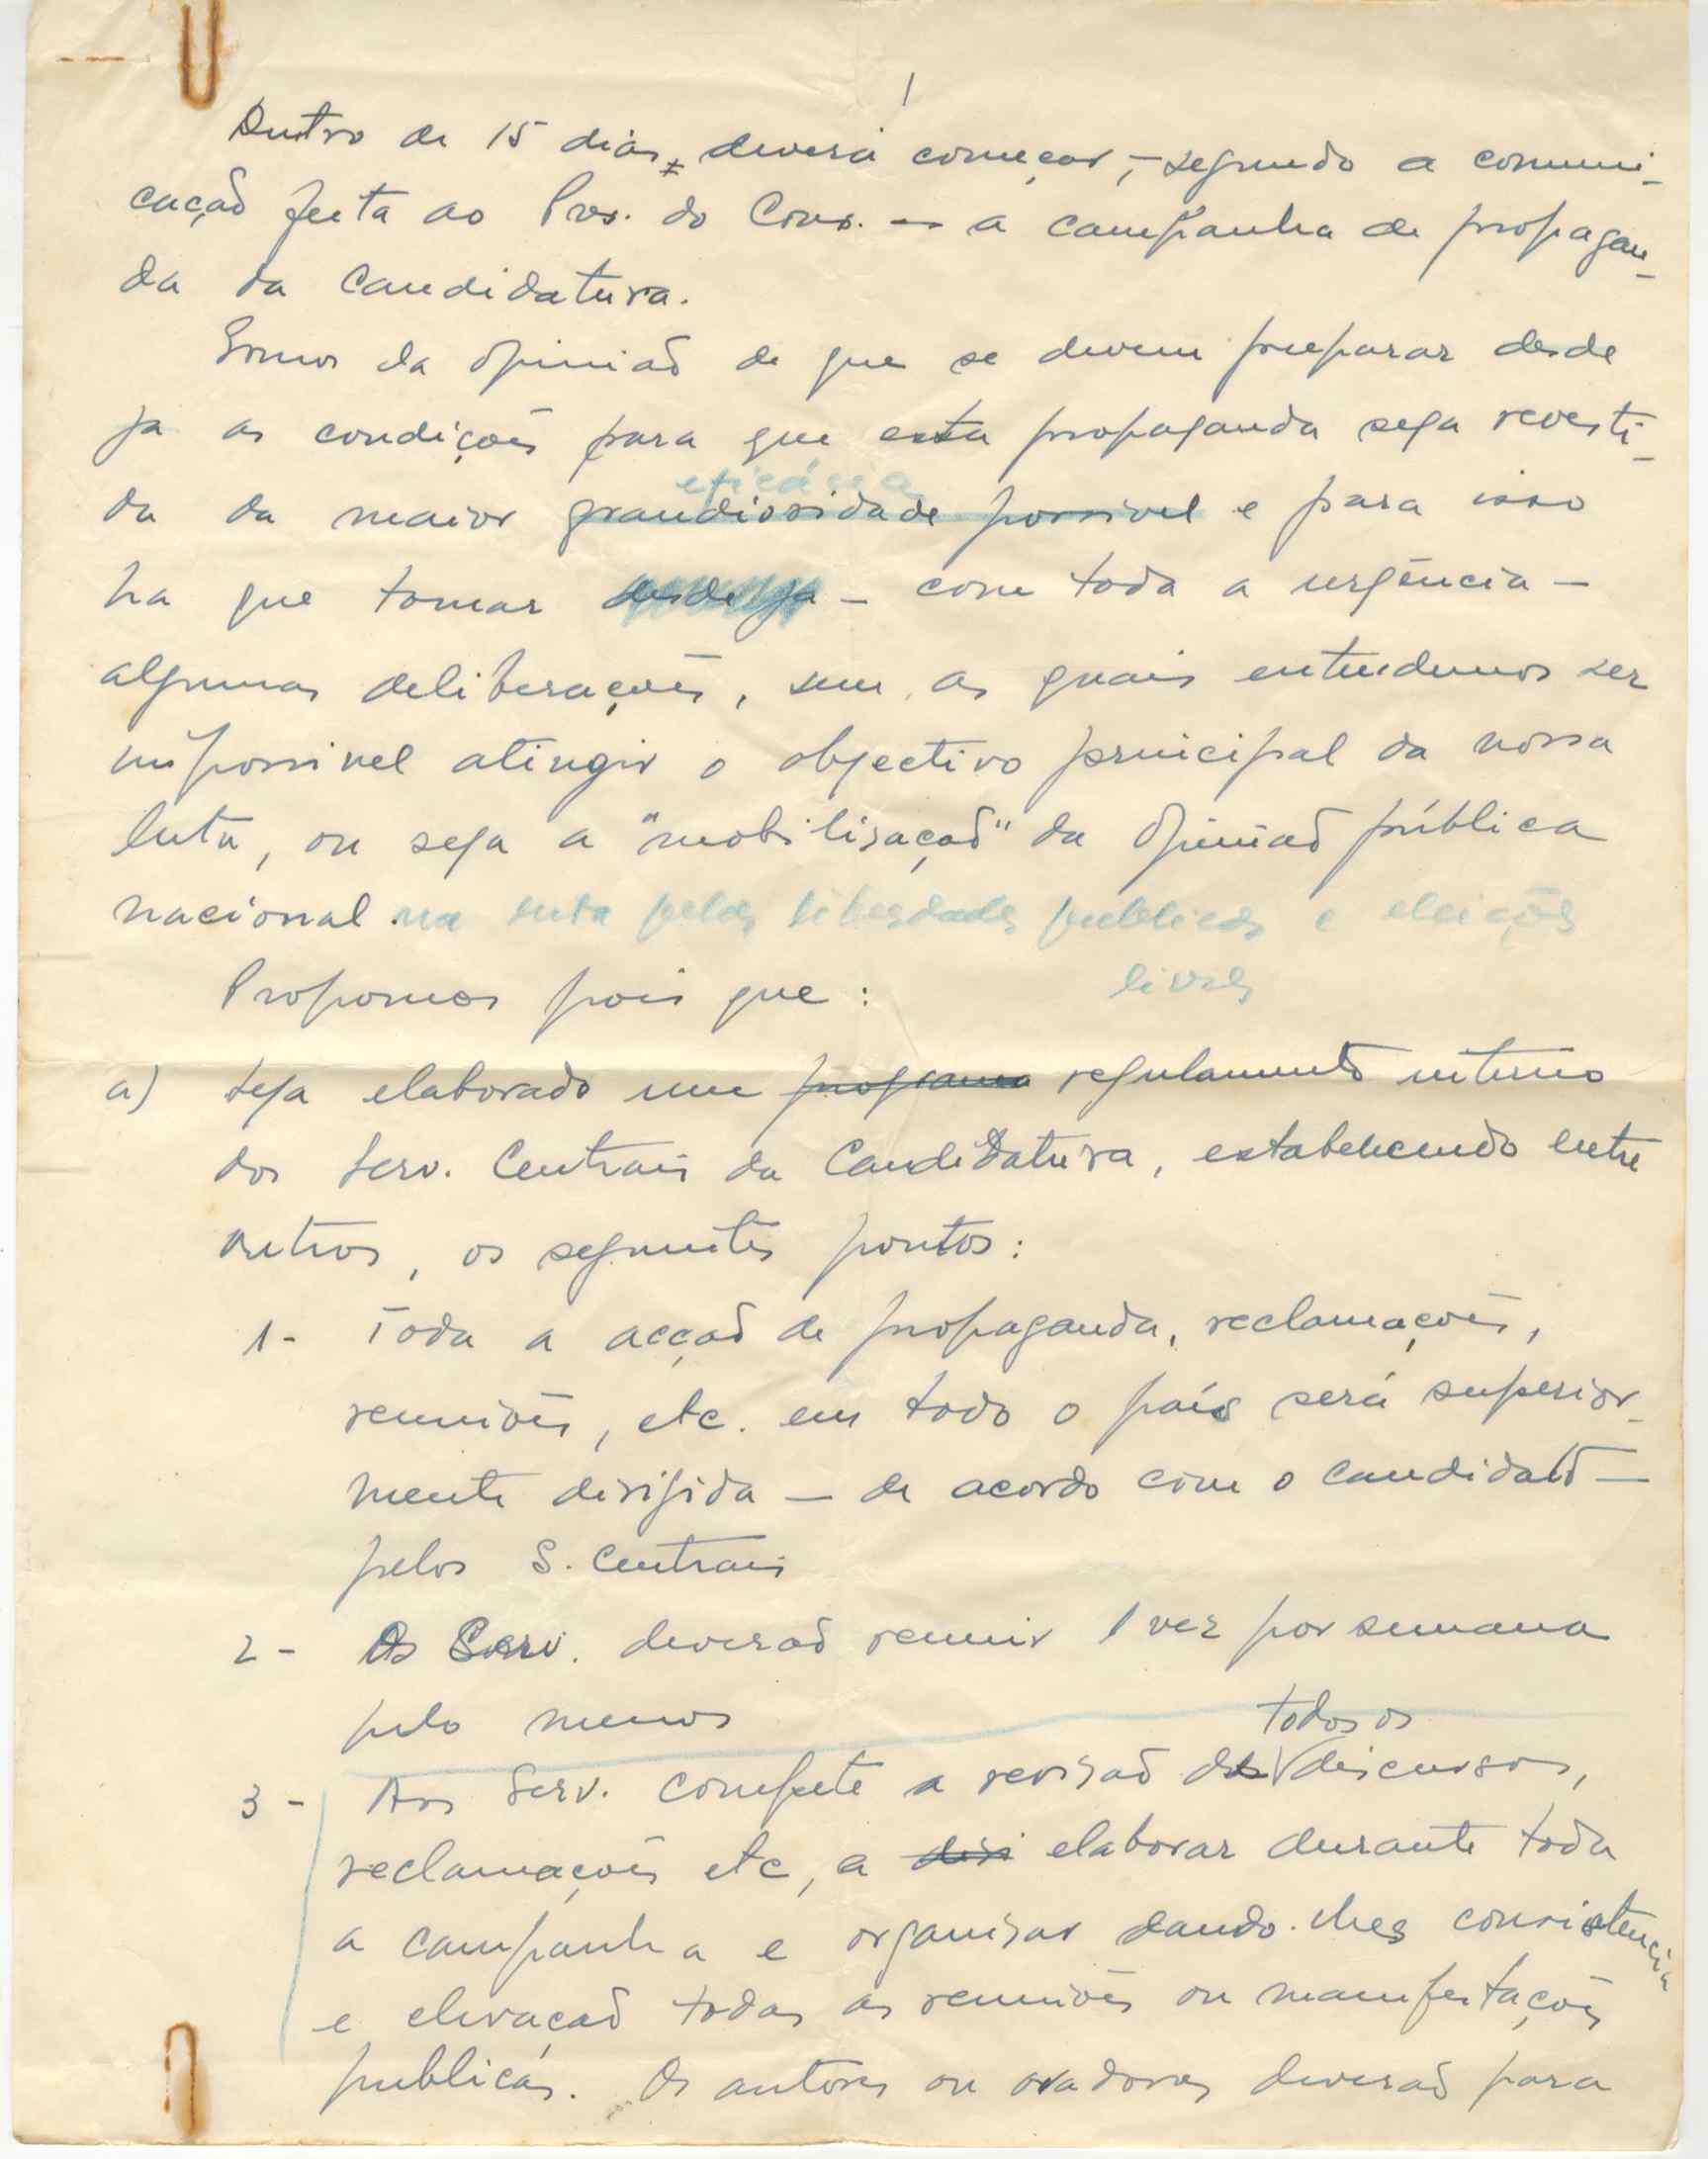 1
Dentro de 15 dias, deverá começar, — segundo a comuni-
cação feita ao Pres. do Cons. — a campanha de propagan-
da da Candidatura.
Somos da opinião de que se devem preparar desde
ja as condições para que esta propaganda seja revesti-
eficácia
da da maior grandiosidade possivel e para isso
ha que tomar desde ja — com toda a urgência —
algumas deliberações, sem as quais entendemos ser
impossivel atingir o objectivo principal da nossa
luta, ou seja a "mobilisação" da Opinião pública
nacional na luta pelas liberdades publicas e eleições
livres
Propomos pois que:
a) seja elaborado um programa regulamento interno
dos Serv. Centrais da Candidatura, estabelecendo entre
outros, os seguintes pontos:
1- Toda a acção de propaganda, reclamações,
reuniões, etc. em todo o país será superior-
mente dirigida — de acordo com o candidato —
pelos S. Centrais
2- Os Serv. deverão reunir 1 vez por semana
pelo menos
todos os
3- Aos Serv. compete a revisão de discursos,
reclamações etc, a elaborar durante toda
a campanha e organisar dando-lhes consistencia
e elevação todas as reuniões ou manifestações
publicas. Os autores ou oradores deverão para